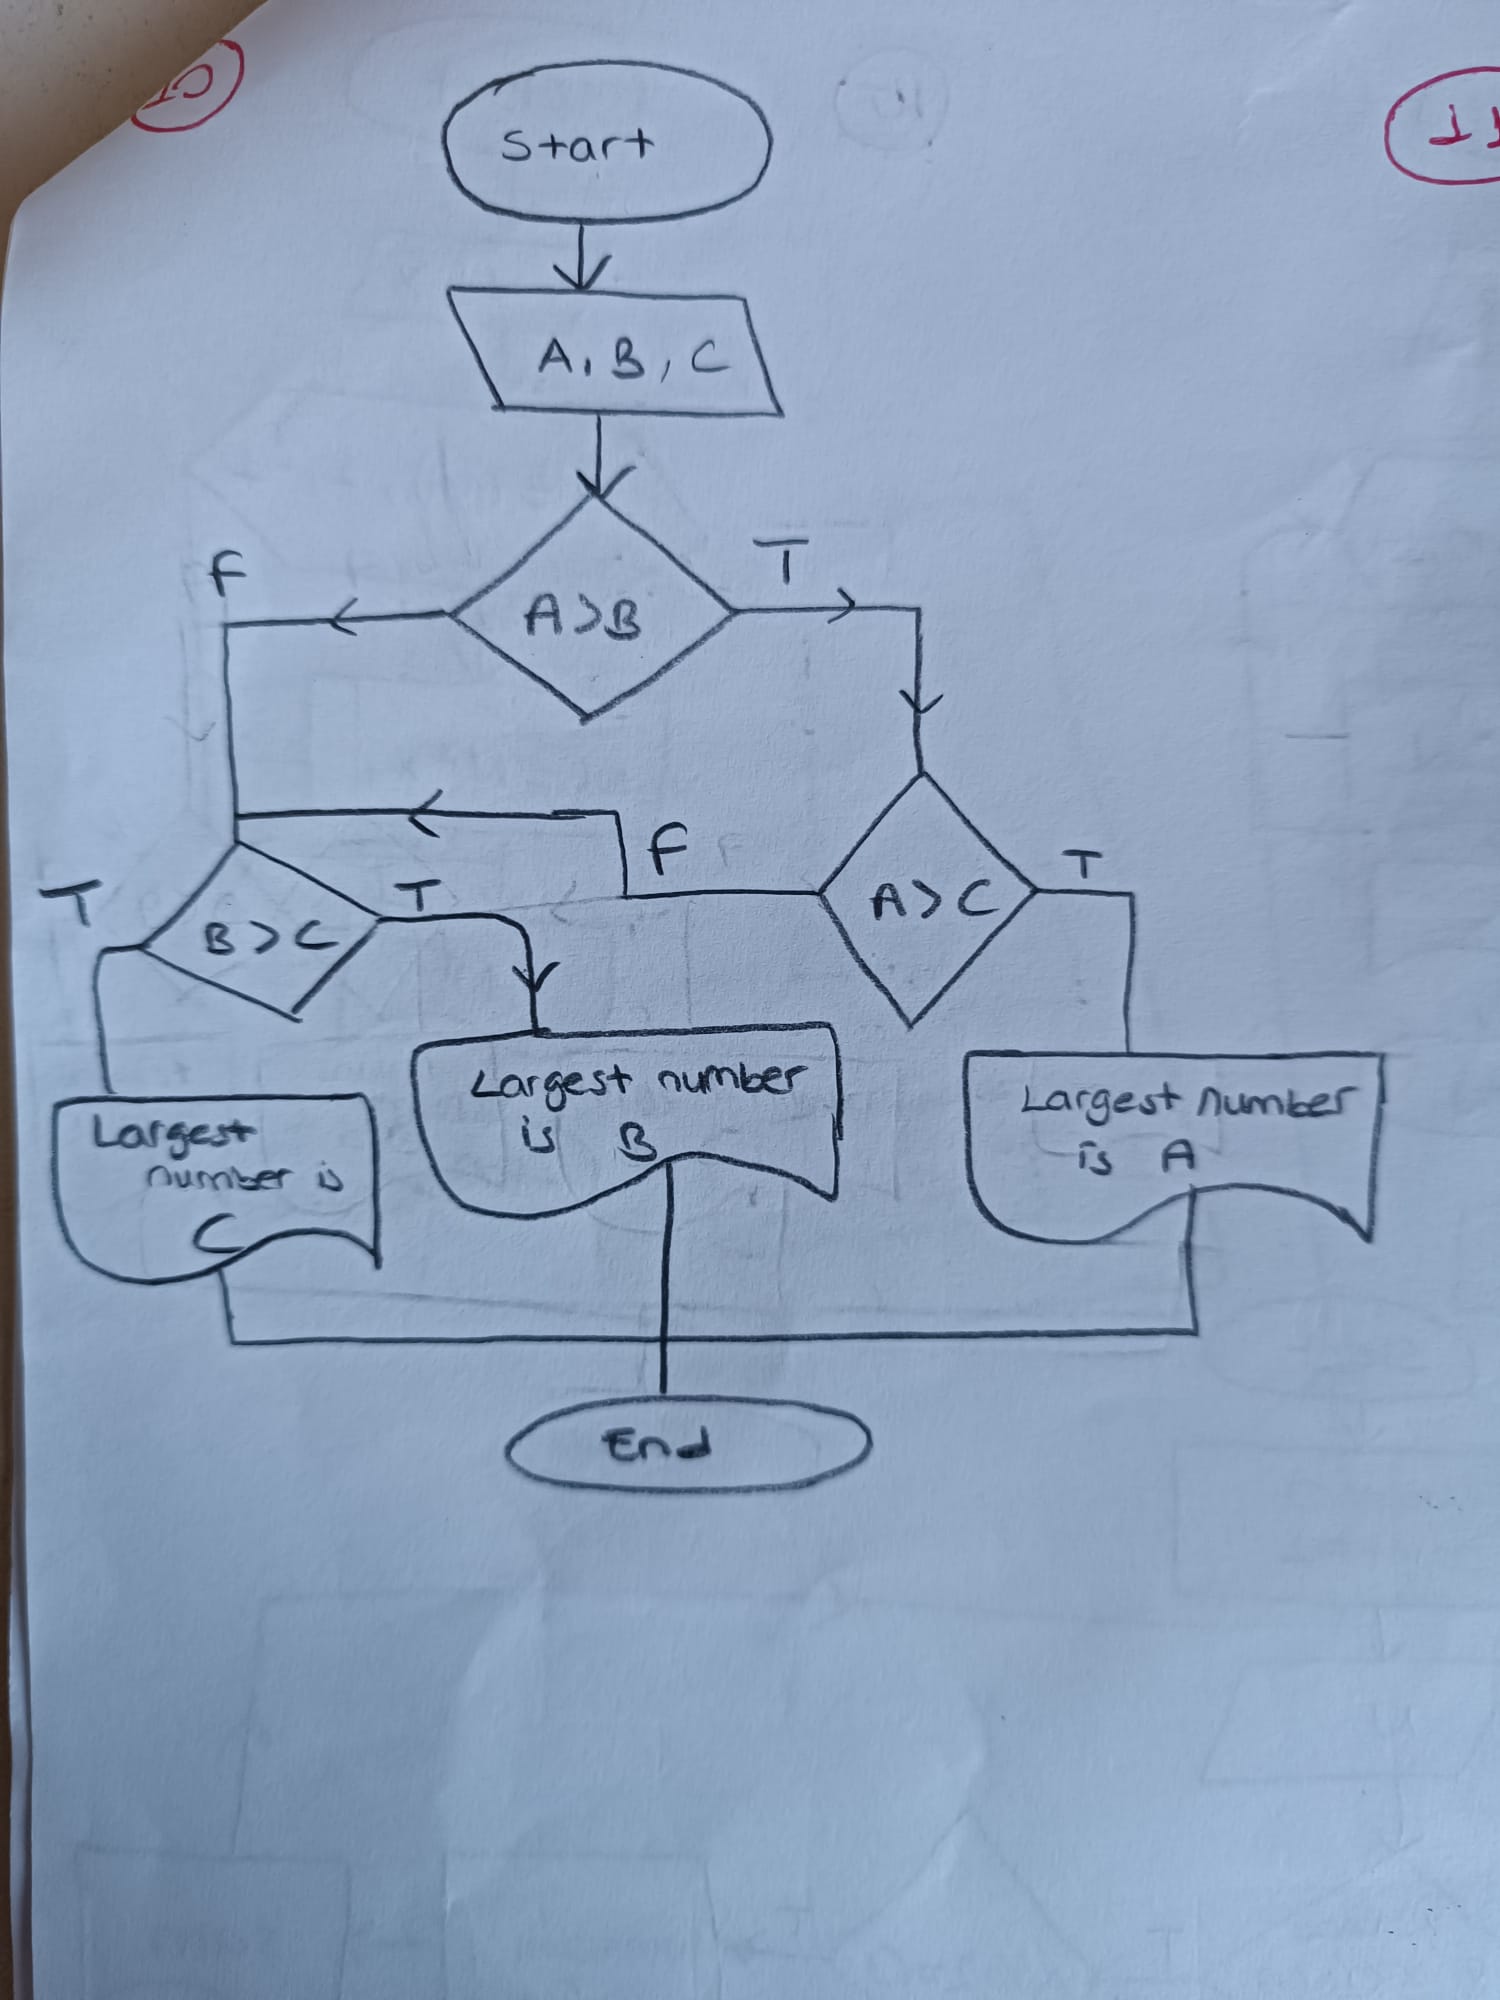 Start
A, B, C
F
T
A>B
F
T
A>C
T
T
B>C
Largest number
is B
Largest number
is A
Largest
number is
C
End